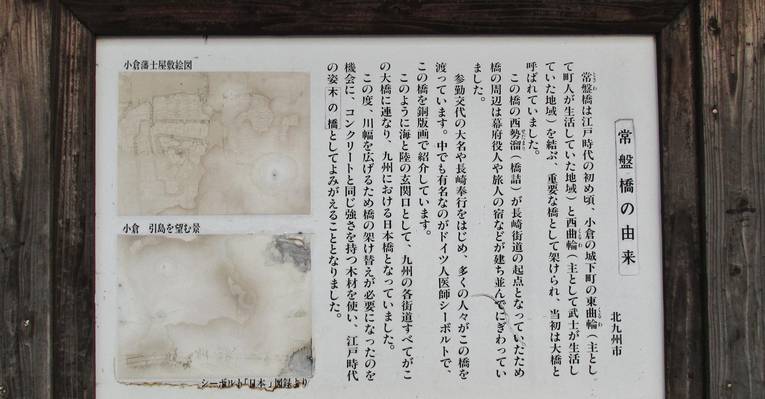 常盤橋の由来
北九州市
常盤橋は江戸時代の初め頃、小倉の城下町の東曲輪（主とし
て町人が生活していた地域）と西曲輪（主として武士が生活し
ていた地域）を結ぶ、重要な橋として架けられ、当初は大橋と
呼ばれていました。
この橋の西勢溜（橋詰）が長崎街道の起点となっていたため
橋の周辺は幕府役人や旅人の宿などが建ち並んでにぎわってい
ました。
参勤交代の大名や長崎奉行をはじめ、多くの人々がこの橋を
渡っています。中でも有名なのがドイツ人医師シーボルトで、
この橋を銅版画で紹介しています。
このように海と陸の玄関口として、九州の各街道すべてがこ
の大橋に連なり、九州における日本橋となっていました。
この度、川幅を広げるため橋の架け替えが必要になったのを
機会に、コンクリートと同じ強さを持つ木材を使い、江戸時代
の姿木の橋としてよみがえることとなりました。
小倉藩士屋敷絵図
小倉 引島を望む景
シーボルト「日本」図録より